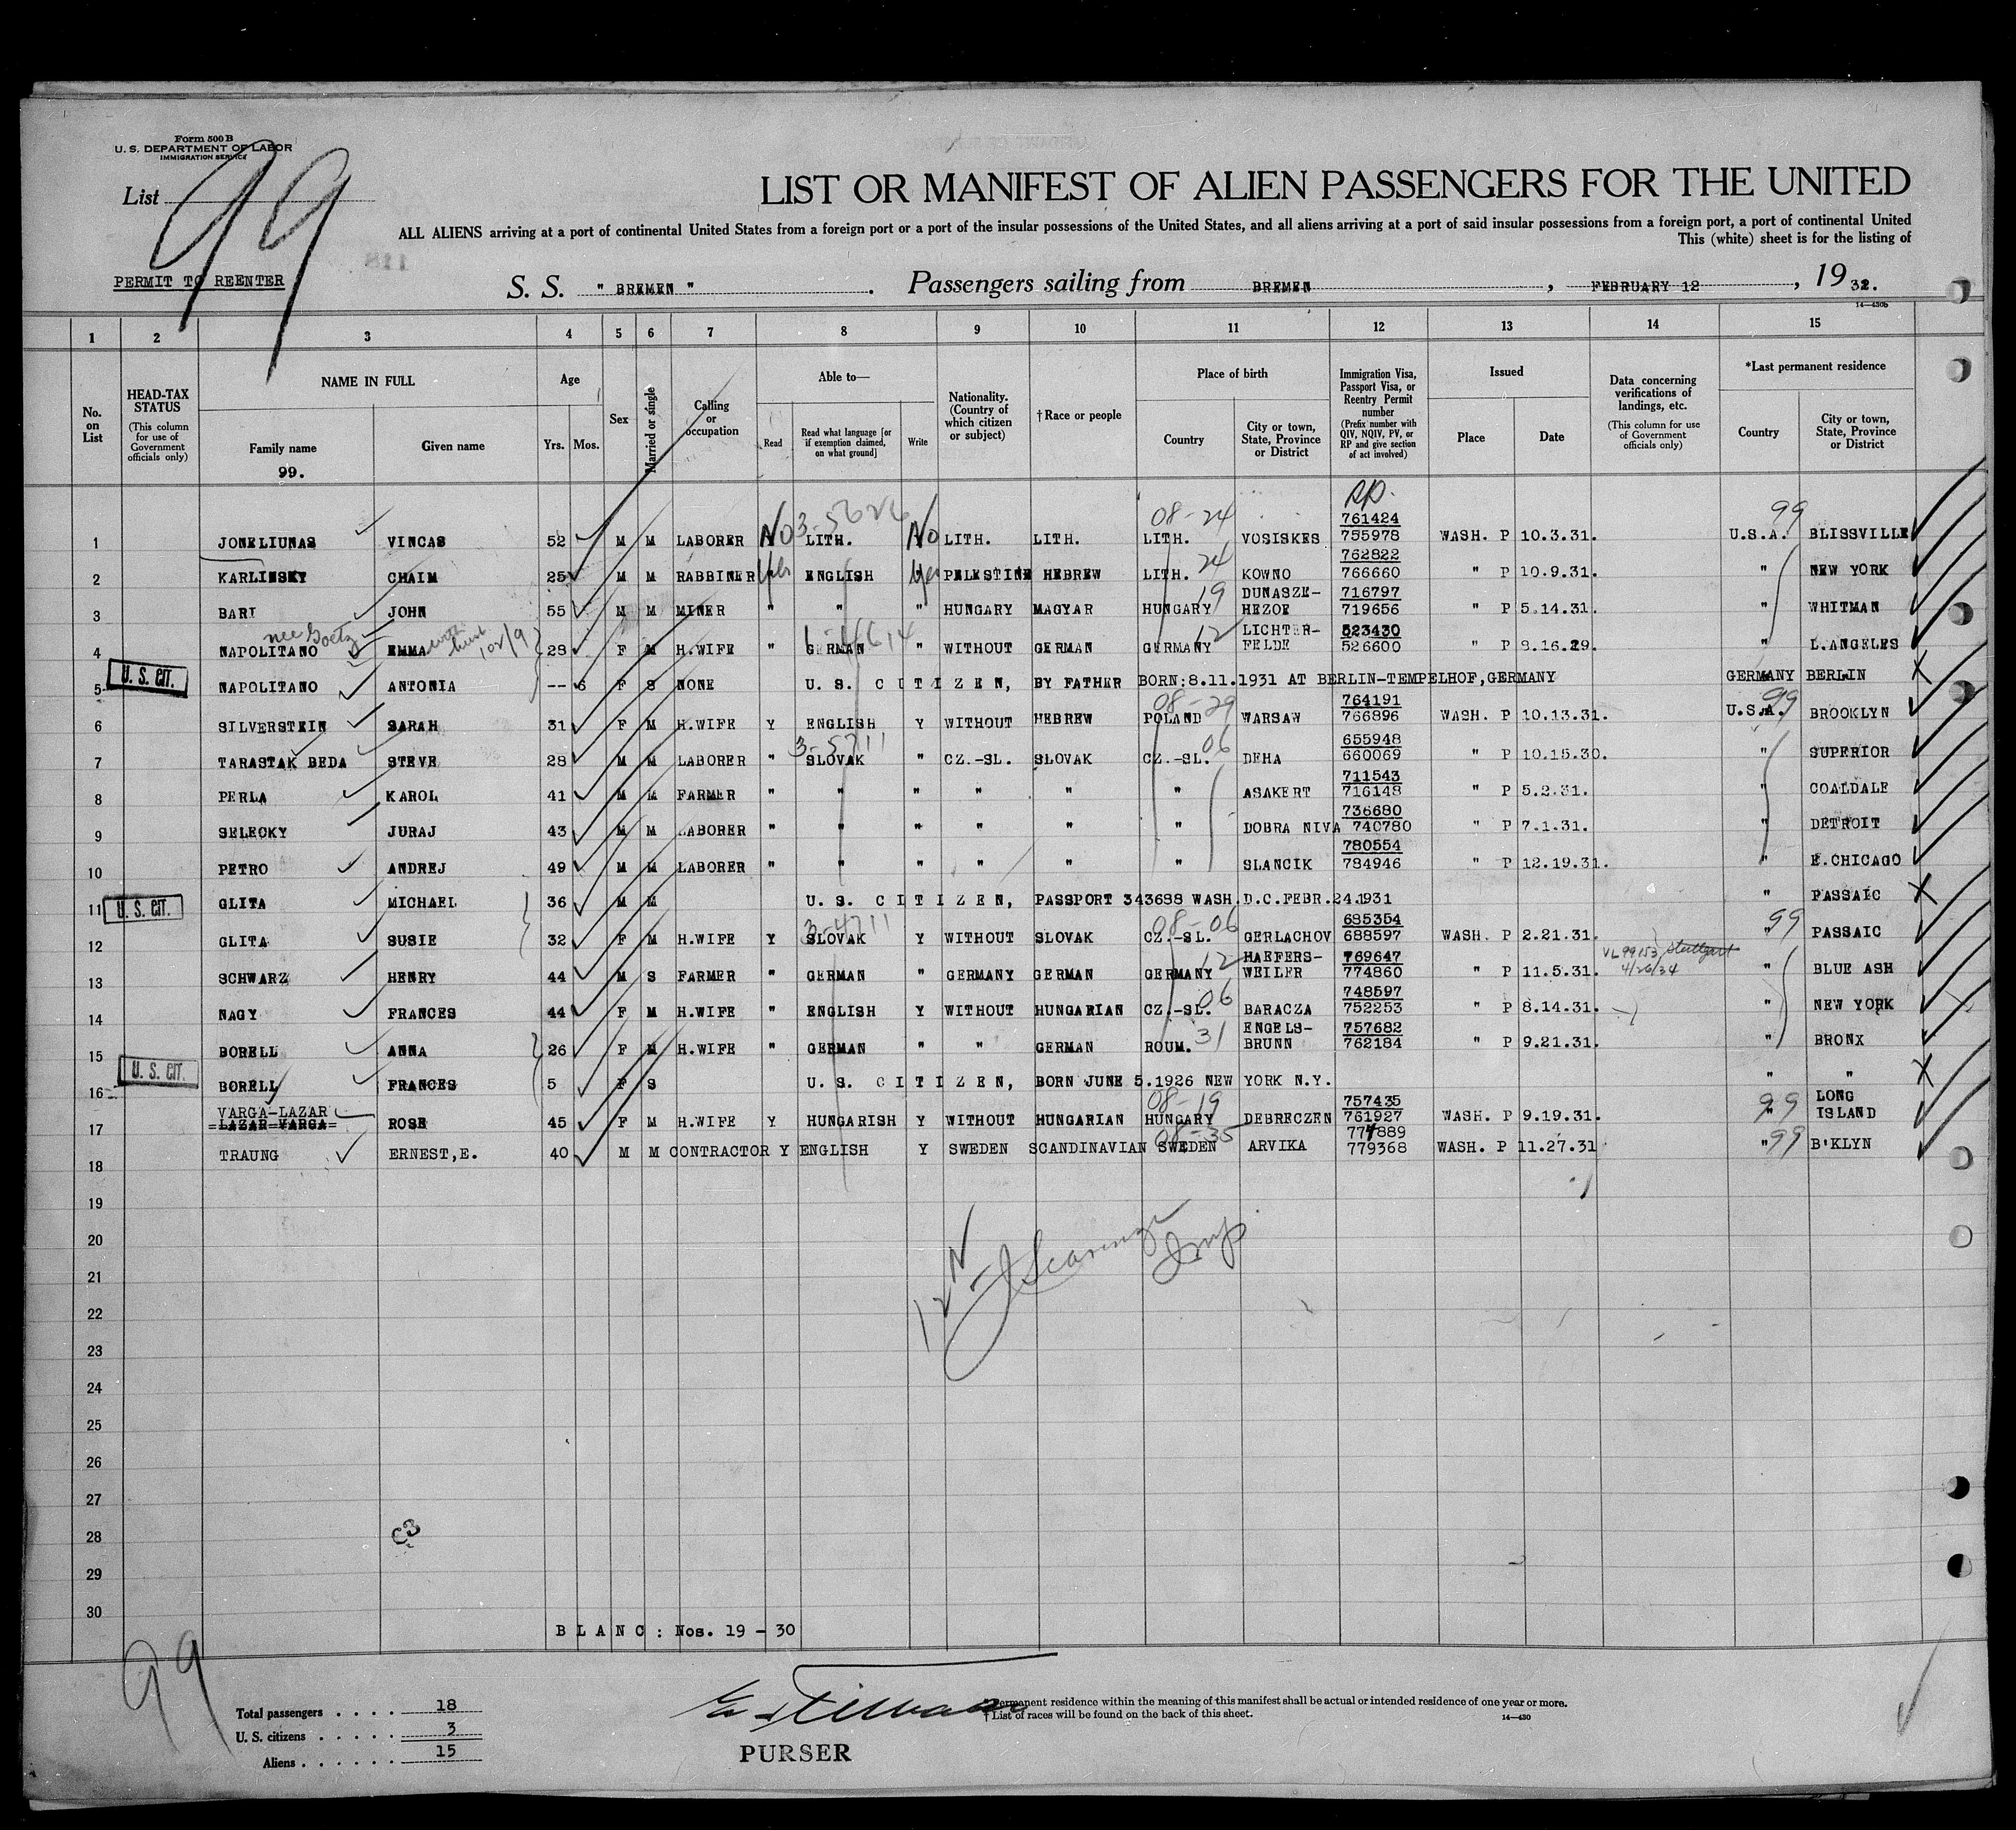 Form 500 B
U. S. DEPARTMENT OF LABOR
IMMIGRATION SERVICE
List 99
LIST OR MANIFEST OF ALIEN PASSENGERS FOR THE UNITED
ALL ALIENS arriving at a port of continental United States from a foreign port or a port of the insular possessions of the United States, and all aliens arriving at a port of said insular possessions from a foreign port, a port of continental United
This (white) sheet is for the listing of
PERMIT TO REENTER
S. S. " BREMEN " . Passengers sailing from BREMEN , FEBRUARY 12 , 19 32.
14—430b
1 2 3 4 5 6 7 8 9 10 11 12 13 14 15
No. on List
HEAD-TAX STATUS (This column for use of Government officials only)
NAME IN FULL
Family name
Given name
99.
Age
Yrs. Mos.
Sex
Married or single
Calling or occupation
Able to—
Read
Read what language [or if exemption claimed, on what ground]
Write
Nationality. (Country of which citizen or subject)
†Race or people
Place of birth
Country
City or town, State, Province or District
Immigration Visa, Passport Visa, or Reentry Permit number (Prefix number with QIV, NQIV, PV, or RP and give section of act involved)
Issued
Place
Date
Data concerning verifications of landings, etc. (This column for use of Government officials only)
*Last permanent residence
Country
City or town, State, Province or District
3-5626 08-24 99
1 JONELIUNAS VINCAS 52 M M LABORER No LITH. No LITH. LITH. LITH. VOSISKES 761424 755978 WASH. P 10.3.31. U.S.A. BLISSVILLE
2 KARLINSKY CHAIM 25 M M RABBINER Yes ENGLISH Yes PELESTINE HEBREW LITH. 24 KOWNO 762822 766660 " P 10.9.31. " NEW YORK
3 BARI JOHN 55 M M MINER " " " HUNGARY MAGYAR HUNGARY 19 DUNASZE-HEZOE 716797 719656 " P 5.14.31. " WHITMAN
nee Goetz
4 NAPOLITANO EMMA 28 F M H.WIFE " GERMAN " WITHOUT GERMAN GERMANY 12 LICHTER-FELDE 523430 526600 " P 8.16.29. " L.ANGELES
U. S. CIT.
5 NAPOLITANO ANTONIA -- 6 F S NONE U. S. CITIZEN, BY FATHER BORN:8.11.1931 AT BERLIN-TEMPELHOF,GERMANY GERMANY BERLIN
08-29 99
6 SILVERSTEIN SARAH 31 F M H.WIFE Y ENGLISH Y WITHOUT HEBREW POLAND WARSAW 764191 766896 WASH. P 10.13.31. U.S.A. BROOKLYN
3-5711 06
7 TARASTAK BEDA STEVE 28 M M LABORER " SLOVAK " CZ.-SL. SLOVAK CZ.-SL. DEHA 655948 660069 " P 10.15.30. " SUPERIOR
8 PERLA KAROL 41 M M FARMER " " " " " " ASAKERT 711543 716148 " P 5.2.31. " COALDALE
9 SELECKY JURAJ 43 M M LABORER " " " " " " DOBRA NIVA 736680 740780 " P 7.1.31. " DETROIT
10 PETRO ANDREJ 49 M M LABORER " " " " " " SLANCIK 780554 784946 " P 12.19.31. " E.CHICAGO
U. S. CIT.
11 GLITA MICHAEL 36 M M U. S. CITIZEN, PASSPORT 343688 WASH.D.C.FEBR.24.1931 " PASSAIC
3-4711 08-06 99
12 GLITA SUSIE 32 F M H.WIFE Y SLOVAK Y WITHOUT SLOVAK CZ.-SL. GERLACHOV 685354 688597 WASH. P 2.21.31. " PASSAIC
VL 99153 Stuttgart 4/26/34
13 SCHWARZ HENRY 44 M S FARMER " GERMAN " GERMANY GERMAN GERMANY 12 HAEFERS-WEILER 769647 774860 " P 11.5.31. " BLUE ASH
14 NAGY FRANCES 44 F M H.WIFE " ENGLISH Y WITHOUT HUNGARIAN CZ.-SL. 06 BARACZA 748597 752253 " P 8.14.31. " NEW YORK
15 BORELL ANNA 26 F M H.WIFE " GERMAN " " GERMAN ROUM. 31 ENGELS-BRUNN 757682 762184 " P 9.21.31. " BRONX
U. S. CIT.
16 BORELL FRANCES 5 F S U. S. CITIZEN, BORN JUNE 5.1926 NEW YORK N.Y. " "
VARGA-LAZAR 08-19 99
17 LAZAR-VARGA ROSE 45 F M H.WIFE Y HUNGARISH Y WITHOUT HUNGARIAN HUNGARY DEBRECZEN 757435 761927 WASH. P 9.19.31. " LONG ISLAND
08-35 99
18 TRAUNG ERNEST,E. 40 M M CONTRACTOR Y ENGLISH Y SWEDEN SCANDINAVIAN SWEDEN ARVIKA 774889 779368 WASH. P 11.27.31 " B'KLYN
19
20
21
22
23
24
25
26
27
28
29
30
BLANC: Nos. 19 - 30
99
Total passengers . . . . 18
U. S. citizens . . . . . 3
Aliens . . . . . . 15
PURSER
*Permanent residence within the meaning of this manifest shall be actual or intended residence of one year or more.
†List of races will be found on the back of this sheet.
14—430